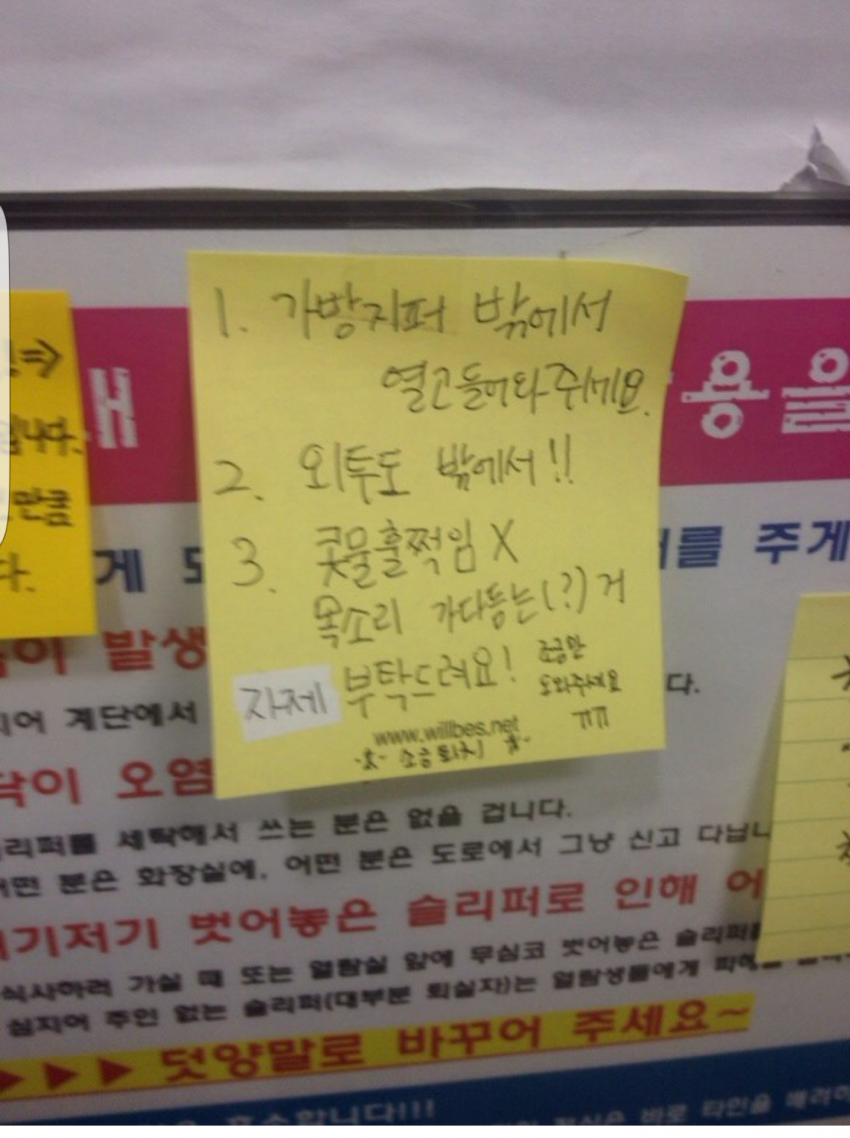 1. 가방지퍼 밖에서
열고들어와주세요.
2. 외투도 밖에서!!
3. 콧물훌쩍임 X
목소리 가다듬는(?) 거
자제 부탁드려요!
조금만
도와주세요
ㅠㅠ
www.willbes.net
소음퇴치
용을
입니다.
만큼
다.
게
를 주게
발생
계단에서
다.
오염
리퍼를 세탁해서 쓰는 분은 없을 겁니다.
어떤 분은 화장실에, 어떤 분은 도로에서 그냥 신고 다닙니
여기저기 벗어놓은 슬리퍼로 인해 어
식사하러 가실 때 또는 열람실 앞에 무심코 벗어놓은 슬리퍼
심지어 주인 없는 슬리퍼(대부분 퇴실자)는 열람생들에게 피해
▶▶▶ 덧양말로 바꾸어 주세요~
바로 타인을 배려하